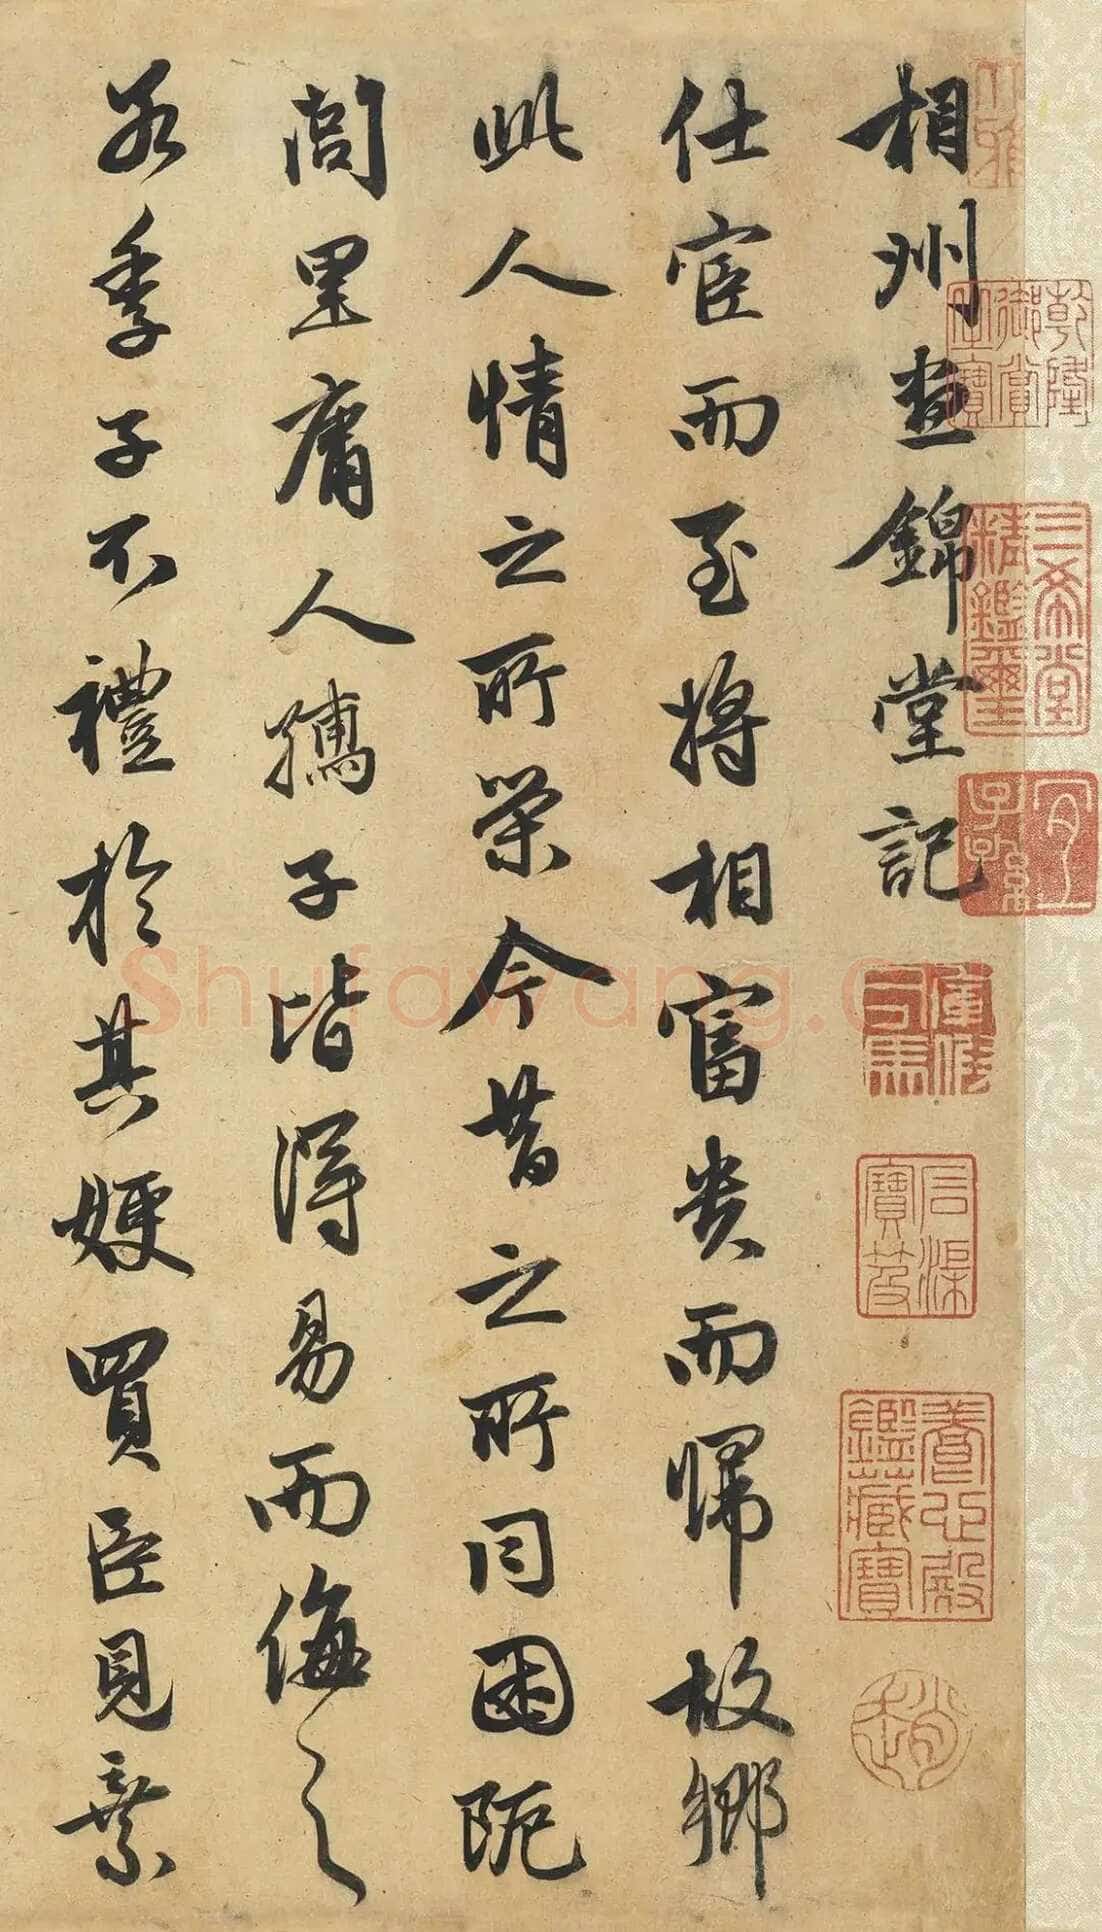 相州晝錦堂記
仕宦而至將相富貴而歸故鄉
此人情之所榮今昔之所同困阨
閭里庸人孺子皆得易而侮之
若季子不禮於其嫂買臣見棄
乾隆御賞之寶
三希堂精鑑璽
宜子孫
石渠寶笈
養心殿鑑藏寶
趙
Shufawang.c